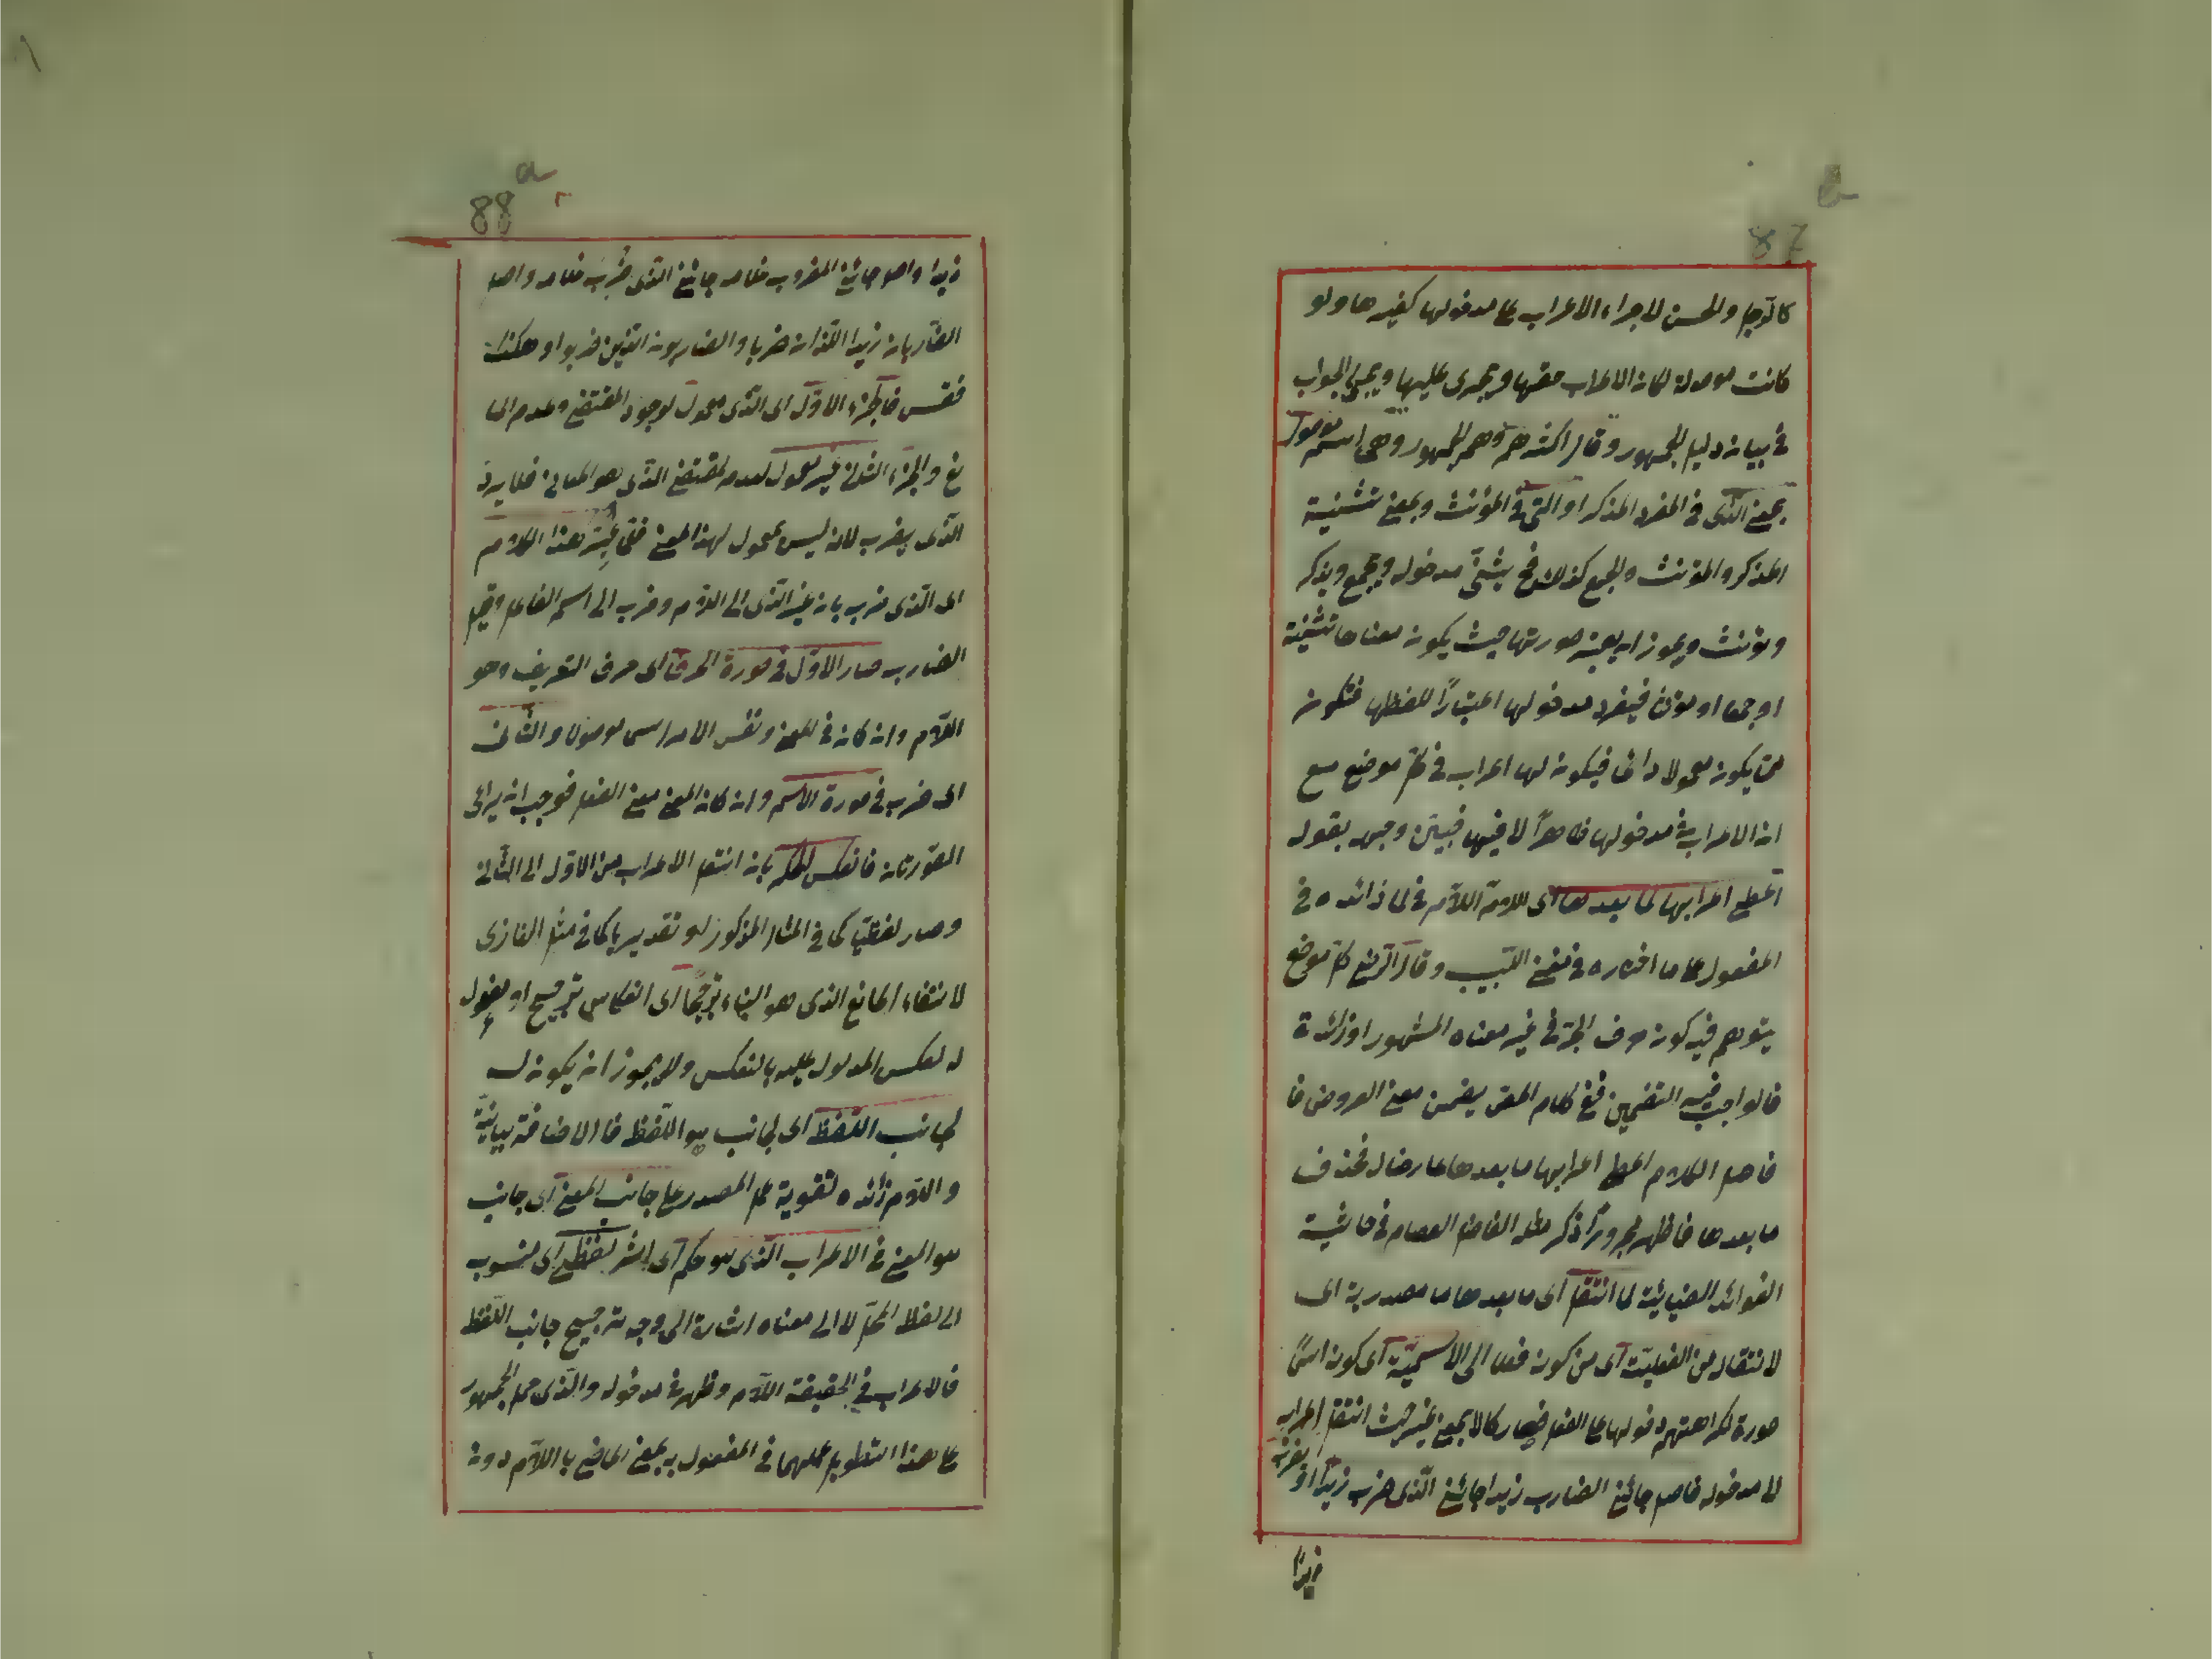 87
كالرجل والحسن لاجراء الاعراب على مدخولها كغيرها ولو
كانت موصولة لكان الاعراب حقها ويجرى عليها ويجئ الجواب
فى بيان دليل الجمهور وقال اكثرهم وهم الجمهور وهى اسم موصول
بمعنى الذى فى المفرد المذكر او التى فى المؤنث وبمعنى تثنية
المذكر والمؤنث والجمع كذلك فح يثنى مدخوله ويجمع ويذكر
ويؤنث ويجوز ان يعتبر صورتها حيث يكون معناها تثنية
او جمعا او مؤنث فيفرد مدخولها اعتبارًا للفظها فتكون
يكون معمولا دائما فيكون لها اعراب فى كل موضع مع
ان الاعراب فى مدخولها ظاهرًا لا فيها فبين وجهه بقوله
اعطى اعرابها لما بعدها اى للام اللام فى لما زائده فى
المفعول على ما اختاره فى مغنى اللبيب وقال الرضى كل موضع
يتوهم فيه كون حرف الجر فى غير معناه المشهور او زائدة
فالواجب فيه التضمين ففى كلام المص يضمن معنى العروض فا
فاصل الكلام اعطى اعرابها ما بعدها عارضا له فحذف
ما بعدها فاظهر مجرورًا ذكر مثله الفاضل العصام فى حاشية
الفوائد الضيائية لما انتقل اى ما بعدها ما مصدرية اى
لانتقاله من الفعلية اى من كونه فعلا الى الاسمية اى كونه اسمًا
صورة لكراهتهم دخولها على الفعل فصار كالا بمعنى غير حيث انتقل اعرابه
الى مدخوله فاصل جائنى الضارب زيدا جائنى الذى ضرب زيدا او
زيدًا
88 a
زيدا واصل جائنى المضروب غلامه جائنى الذى ضُرب غلامه واصل
الضاربان زيدا اللذان ضربا والضاربون الذين ضربوا وهكذا
فقس فالجزء الاول اى الذى معمول لوجود المقتضى وعدم الما
نع والجزء الثانى غير معمول لعدم المقتضى الذى هو المعانى فلا يرد
الذى يضرب لانه ليس بمعمول لهذا المعنى فلما غيّر هذا الكلام
اى الذى ضرب بان غير الذى الى اللام وضرب الى اسم الفاعل وقيل
الضارب صار الاول فى صورة الحرف اى حرف التعريف وهو
اللام وان كان فى المعنى ونفس الامر اسما موصولا والثانى
اى ضرب فى صورة الاسم وان كان المعنى معنى الفعل فوجب ان يراعى
الصورتان فانعكس الحكم بان انتقل الاعراب من الاول الى الثانى
وصار لفظيا كما فى المثال المذكور او تقديريا كما فى مثل الغازى
لانتفاء المانع الذى هو البناء ترجيحًا اى انعكاس ترجيح او مفعول
له لعكس المدلول عليه بالنعكس ولا يجوز ان يكون له
لجانب اللفظ اى لجانب هو اللفظ فالاضافة بيانية
واللام زائده لتقوية عمل المصدر على جانب المعنى اى جانب
هو المعنى فى الاعراب الذى هو حكم اى اثر لفظى اى منسوب
الى لفظ الكل لا الى معناه اشارة الى وجه ترجيح جانب اللفظ
فالاعراب فى الحقيقة اللام وظهر فى مدخوله والذى حمل الجمهور
على هذا التطويل عملهما فى المفعول به بمعنى الماضى باللام دون